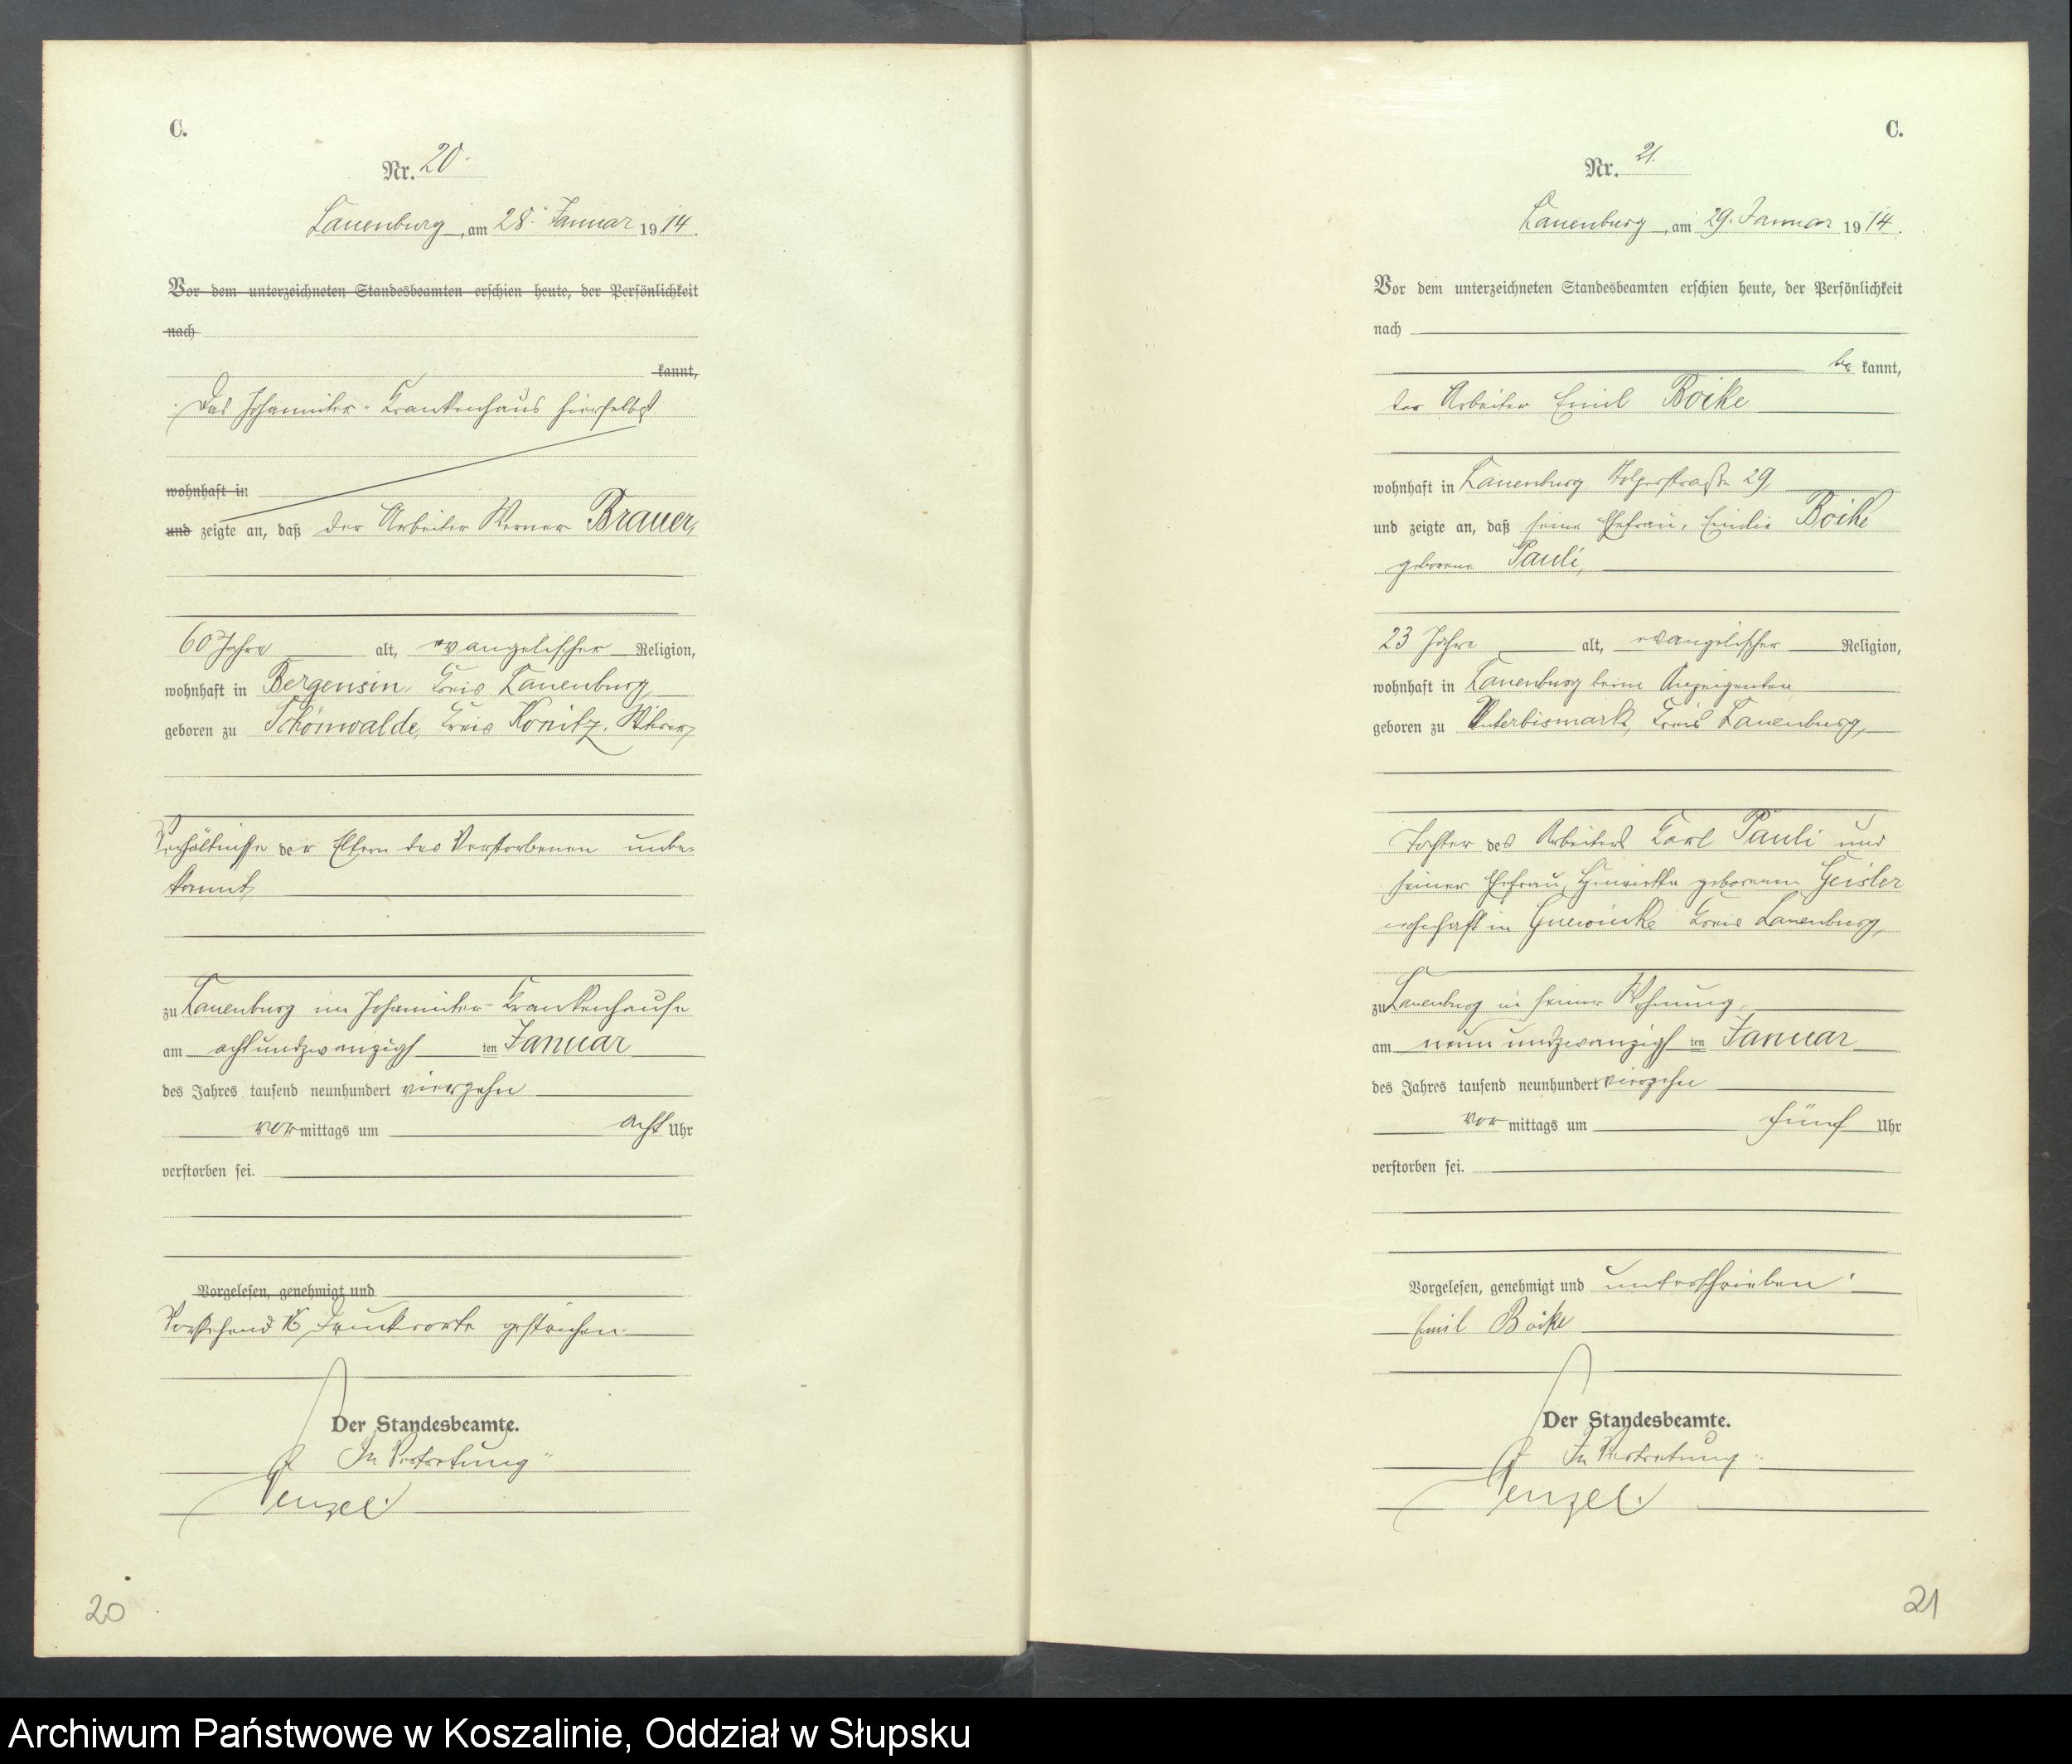 C.
Nr. 20.
Lauenburg, am 28. Januar 1914.
Vor dem unterzeichneten Standesbeamten erschien heute, der Persönlichkeit
nach
kannt,
Das Johanniter-Krankenhaus hierselbst
wohnhaft in
und zeigte an, daß der Arbeiter Werner Brauer,
60 Jahre alt, evangelischer Religion,
wohnhaft in Bergensin, Kreis Lauenburg,
geboren zu Schönwalde, Kreis Konitz,
Verhältnisse der Eltern des Verstorbenen unbe-
kannt,
zu Lauenburg im Johanniter-Krankenhause
am achtundzwanzigsten Januar
des Jahres tausend neunhundert vierzehn
vormittags um acht Uhr
verstorben sei.
Vorgelesen, genehmigt und
Vorstehend 16 Druckworte gestrichen.
Der Standesbeamte.
In Vertretung:
20
C.
Nr. 21.
Lauenburg, am 29. Januar 1914.
Vor dem unterzeichneten Standesbeamten erschien heute, der Persönlichkeit
nach
be kannt,
der Arbeiter Emil Boike
wohnhaft in Lauenburg 29,
und zeigte an, daß seine Ehefrau, Emilie Boike
geborene Pauli,
23 Jahre alt, evangelischer Religion,
wohnhaft in Lauenburg beim Anzeigenden
geboren zu Unterbismark, Kreis Lauenburg,
Tochter des Arbeiters Carl Pauli und
seiner Ehefrau, Henriette geborenen Geisler
wohnhaft in Gnewinke Kreis Lauenburg,
zu Lauenburg in seiner Wohnung,
am neunundzwanzigsten Januar
des Jahres tausend neunhundert vierzehn
vormittags um fünf Uhr
verstorben sei.
Vorgelesen, genehmigt und unterschrieben:
Emil Boike
Der Standesbeamte.
In Vertretung:
21
Archiwum Państwowe w Koszalinie, Oddział w Słupsku